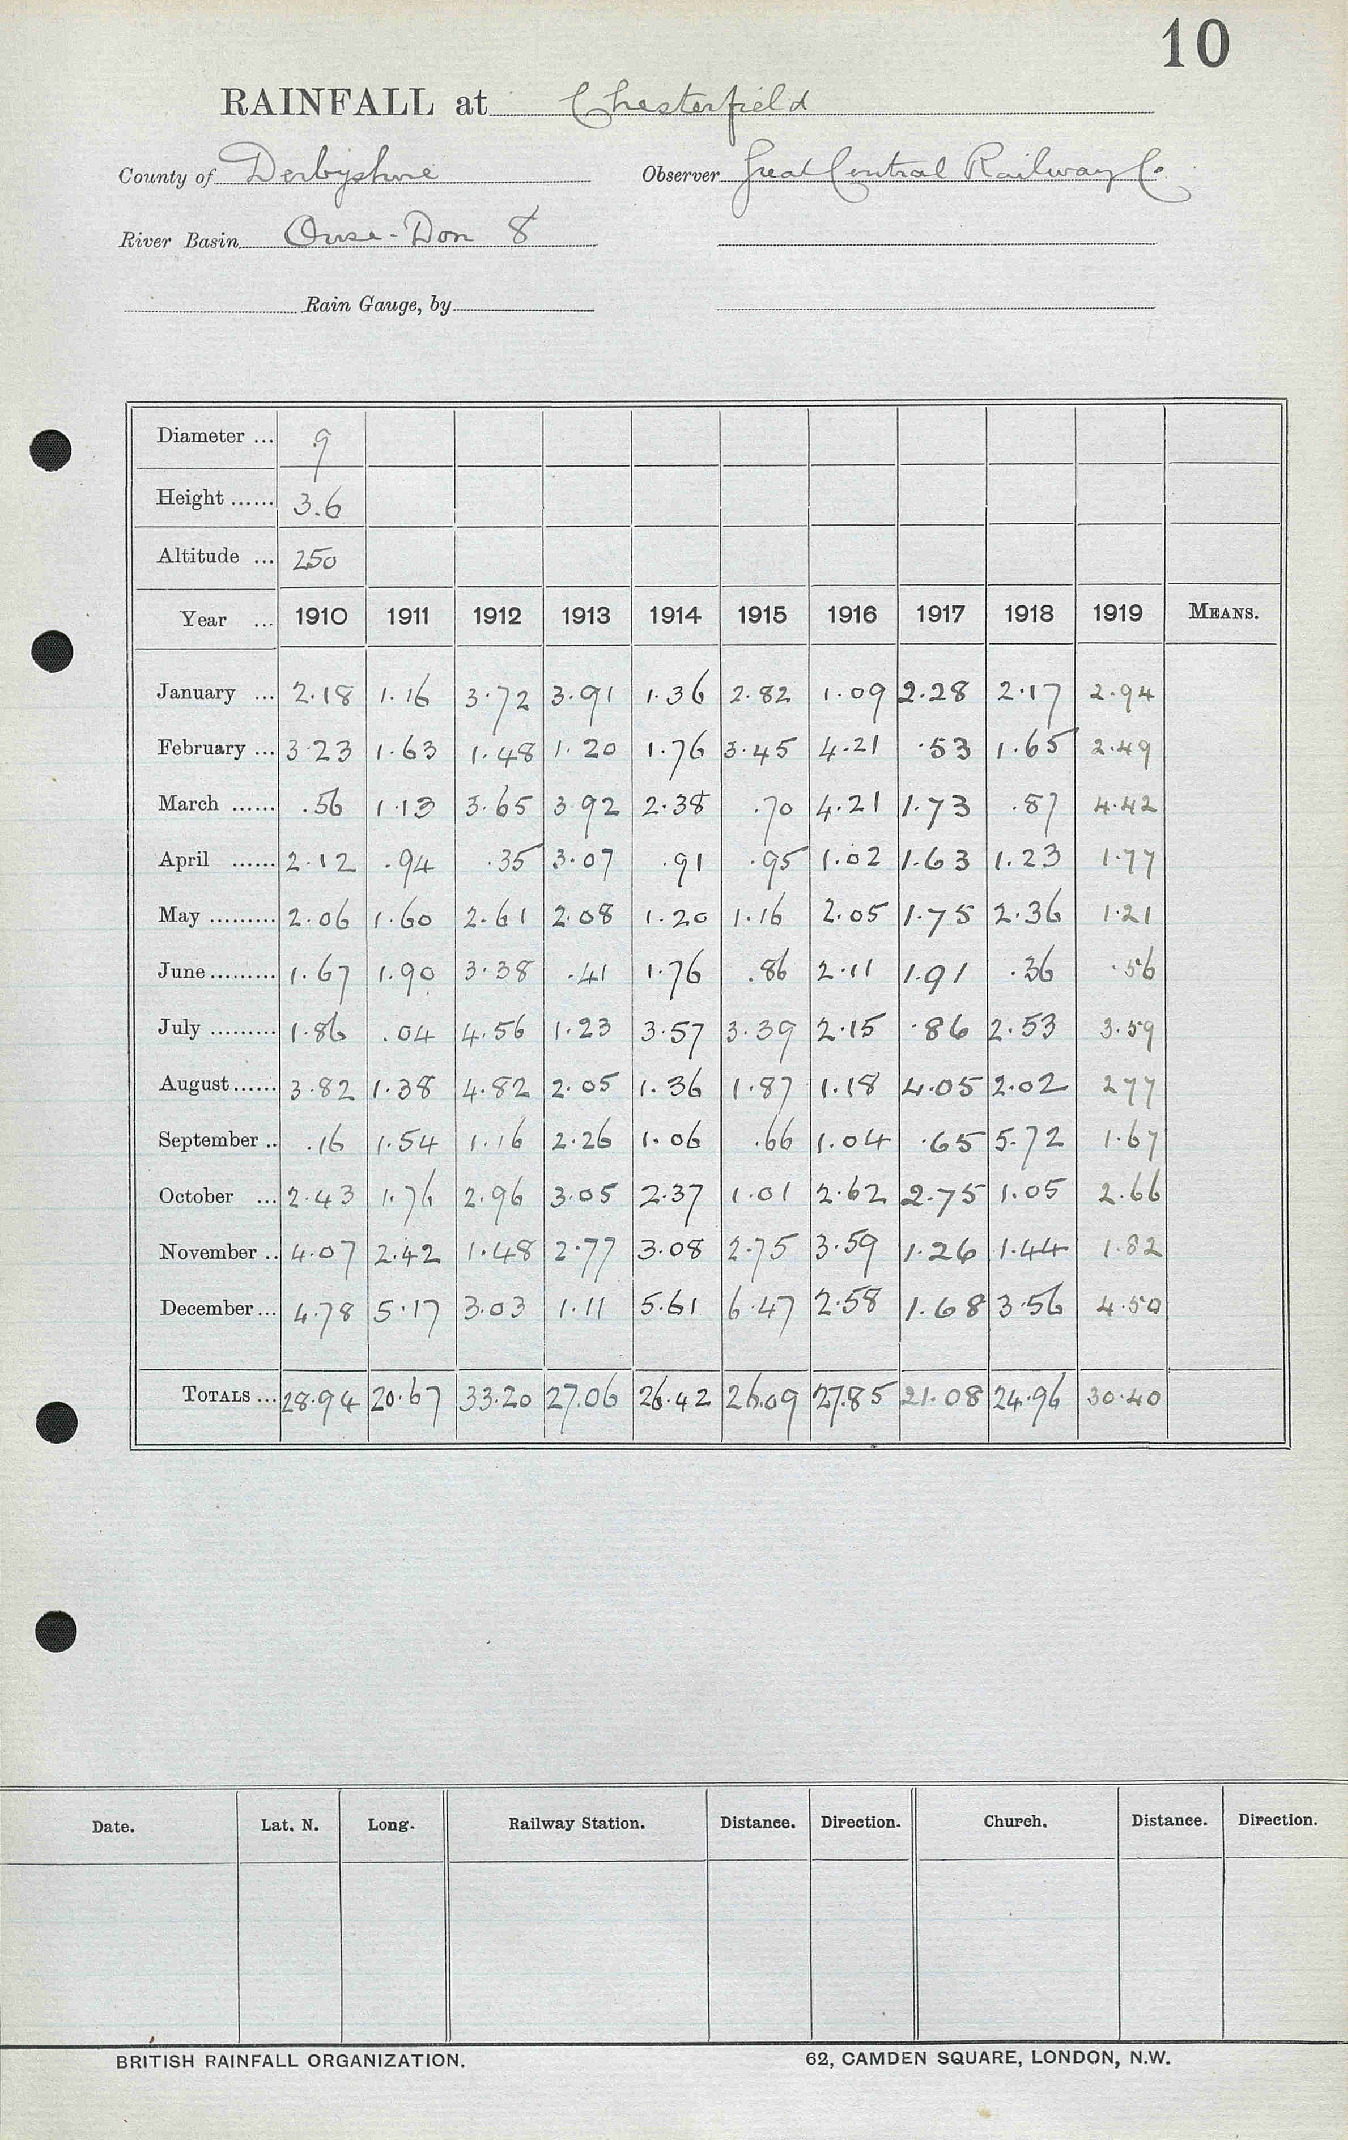 10
RAINFALL at Chesterfield
County of Derbyshire Observer Great Central Railway Co.
River Basin Ouse-Don 8
Rain Gauge, by
Diameter ... 9
Height ...... 3.6
Altitude ... 250
Year ... 1910 1911 1912 1913 1914 1915 1916 1917 1918 1919 MEANS.
January ... 2.18 1.16 3.72 3.91 1.36 2.82 1.09 2.28 2.17 2.94
February ... 3.23 1.63 1.48 1.20 1.76 3.45 4.21 .53 1.65 2.49
March ...... .56 1.13 3.65 3.92 2.38 .70 4.21 1.73 .87 4.42
April ...... 2.12 .94 .35 3.07 .91 .95 1.02 1.63 1.23 1.77
May ......... 2.06 1.60 2.61 2.08 1.20 1.16 2.05 1.75 2.36 1.21
June ......... 1.67 1.90 3.38 .41 1.76 .86 2.11 1.91 .36 .56
July ......... 1.86 .04 4.56 1.23 3.57 3.39 2.15 .86 2.53 3.59
August ...... 3.82 1.38 4.82 2.05 1.36 1.87 1.18 4.05 2.02 2.77
September .. .16 1.54 1.16 2.26 1.06 .66 1.04 .65 5.72 1.67
October ... 2.43 1.76 2.96 3.05 2.37 1.01 2.62 2.75 1.05 2.66
November .. 4.07 2.42 1.48 2.77 3.08 2.75 3.59 1.26 1.44 1.82
December ... 4.78 5.17 3.03 1.11 5.61 6.47 2.58 1.68 3.56 4.50
TOTALS ... 28.94 20.67 33.20 27.06 26.42 26.09 27.85 21.08 24.96 30.40
Date. Lat. N. Long. Railway Station. Distance. Direction. Church. Distance. Direction.
BRITISH RAINFALL ORGANIZATION. 62, CAMDEN SQUARE, LONDON, N.W.